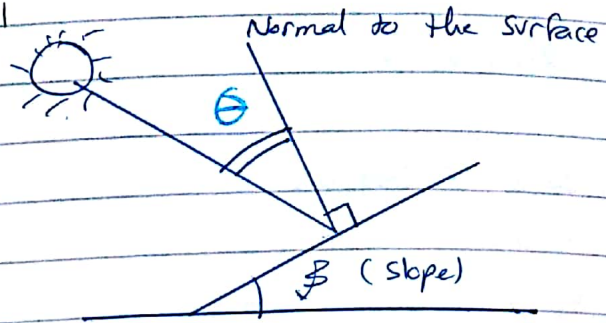 Normal to the surface
θ
β (slope)